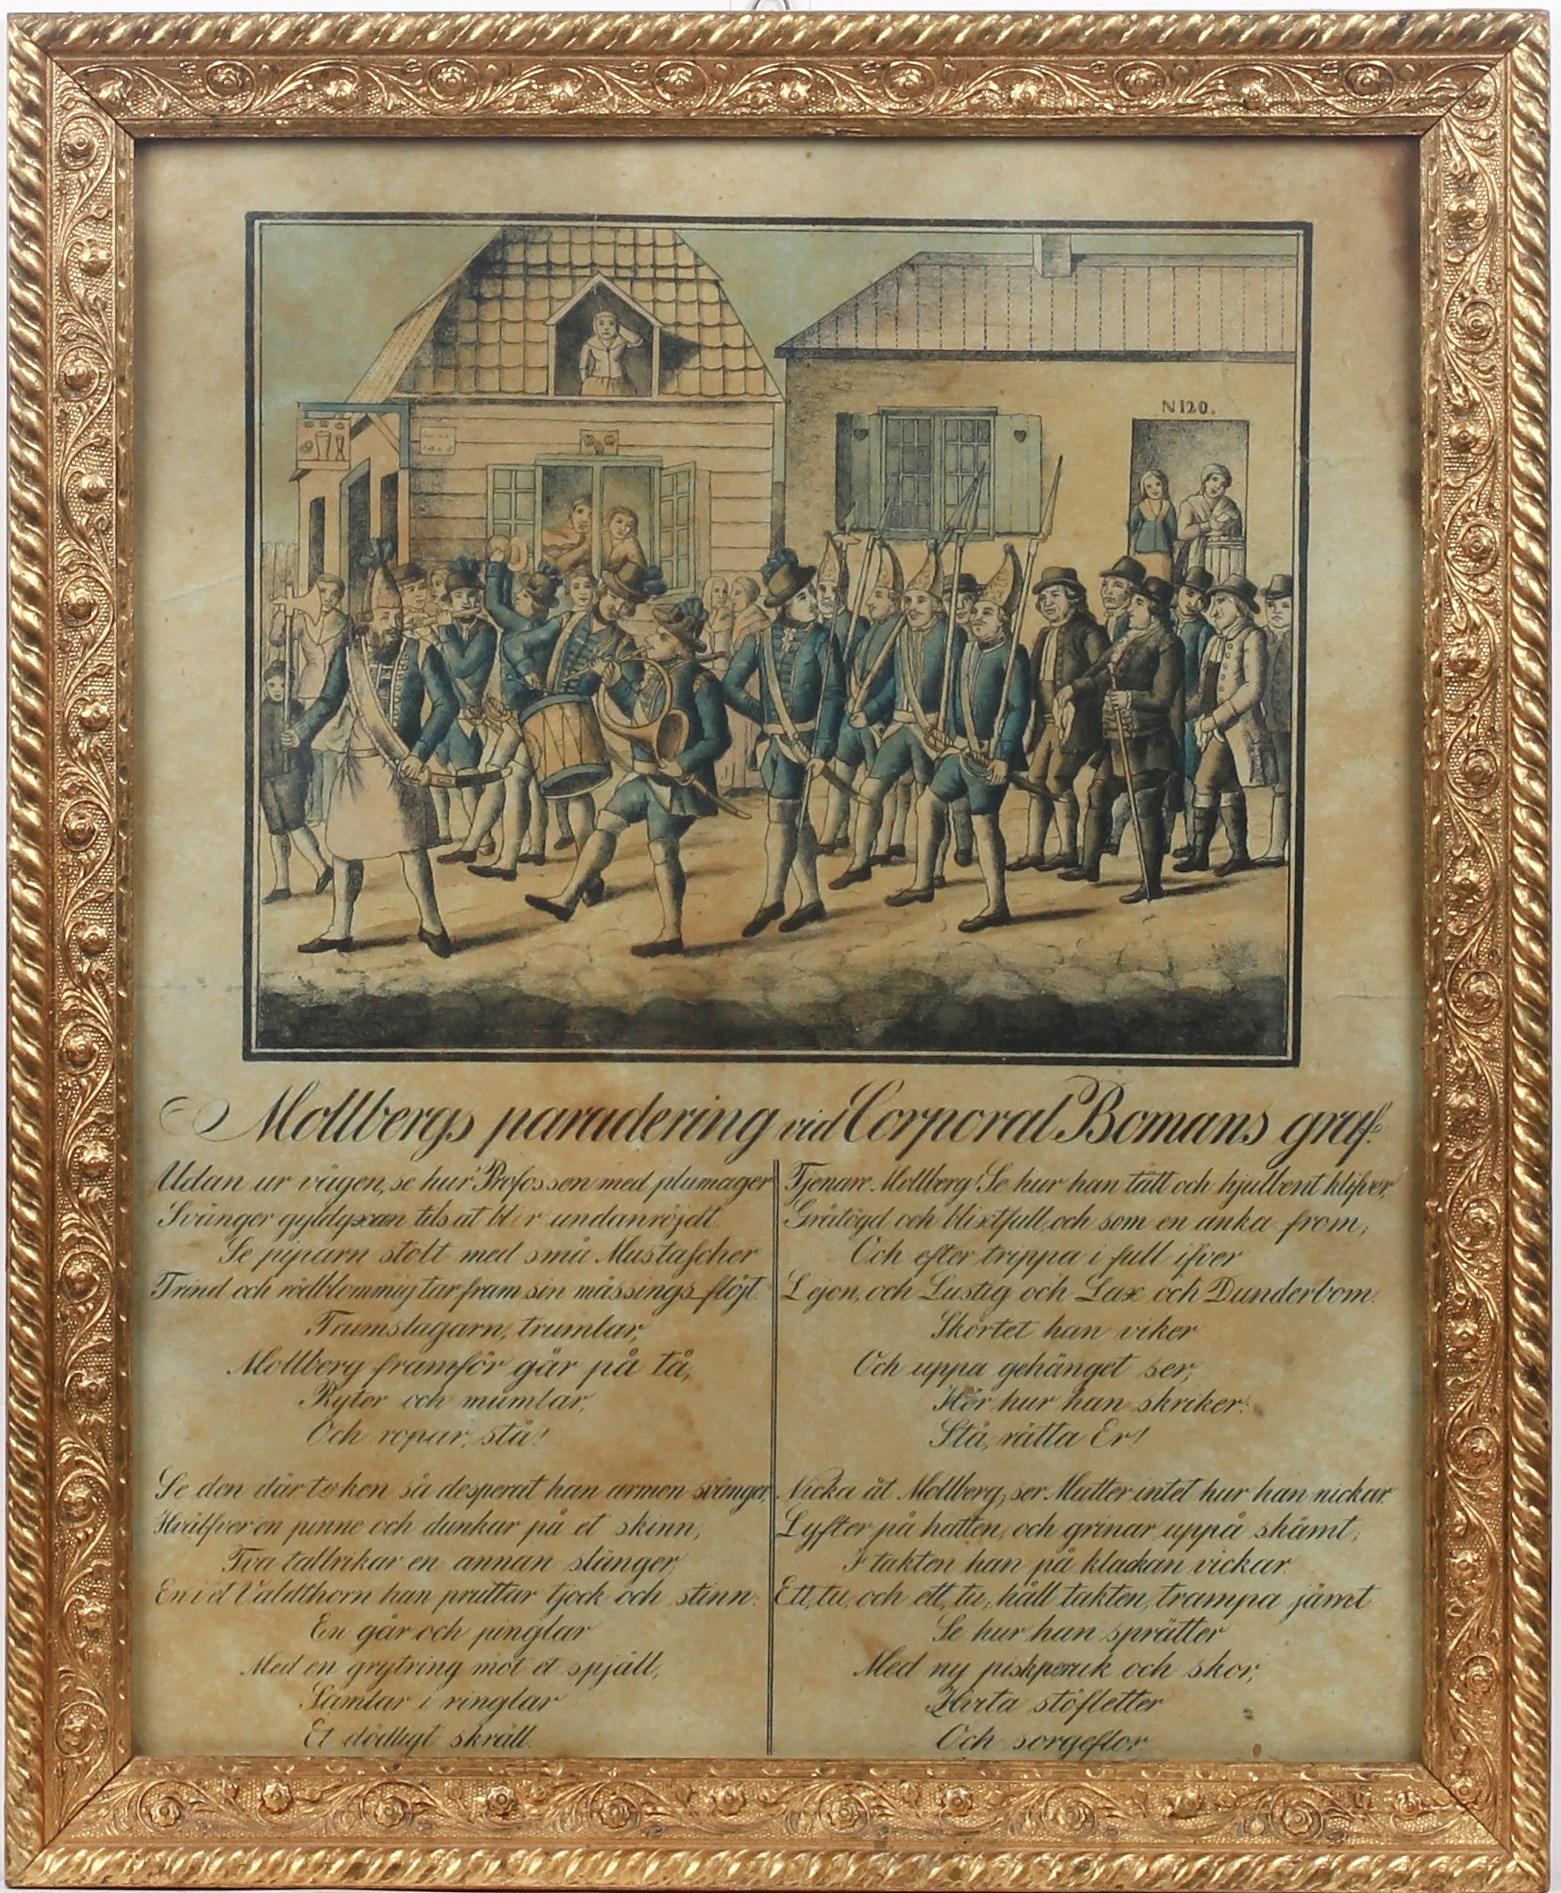 N 120.
Mollbergs paradering vid Corporal Bomans graf.
Udan ur vägen, se hur Profossen med plumager
Svänger gyldyxan tils at blir undanröjdt.
Se piparn stolt med små Mustascher
Trind och rödblommig tar fram sin mässings flöjt.
Trumslagarn, trumlar,
Mollberg framför går på tå,
Ryter och mumlar,
Och ropar, stå!
Se den där token så desperat han armen svänger,
Hvälfver en pinne och dunkar på et skinn,
Tva tallrikar en annan slänger,
En i et Valdthorn han pruttar tjock och stinn.
En går och pinglar
Med en grytring mot et spjäll,
Samlar i ringlar
Et dödligt skräll.
Tjenare Mollberg! Se hur han tätt och hjulbent klifver,
Gråtögd och blixtfull, och som en anka from,
Och efter trippa i full ifver
Lejon, och Lustig och Lax och Dunderbom.
Skörtet han viker
Och uppa gehänget ser;
Hör hur han skriker:
Stå, rätta Er!
Nicka åt Mollberg; ser Mutter intet hur han nickar.
Lyfter på hatten, och grinar uppå skämt;
I takten han på klackan vickar.
Ett, tu, och ett, tu, hållt takten, trampa jämt
Se hur han sprätter
Med ny piskperuk och skor,
Hvita stöfletter
Och sorgeflor.